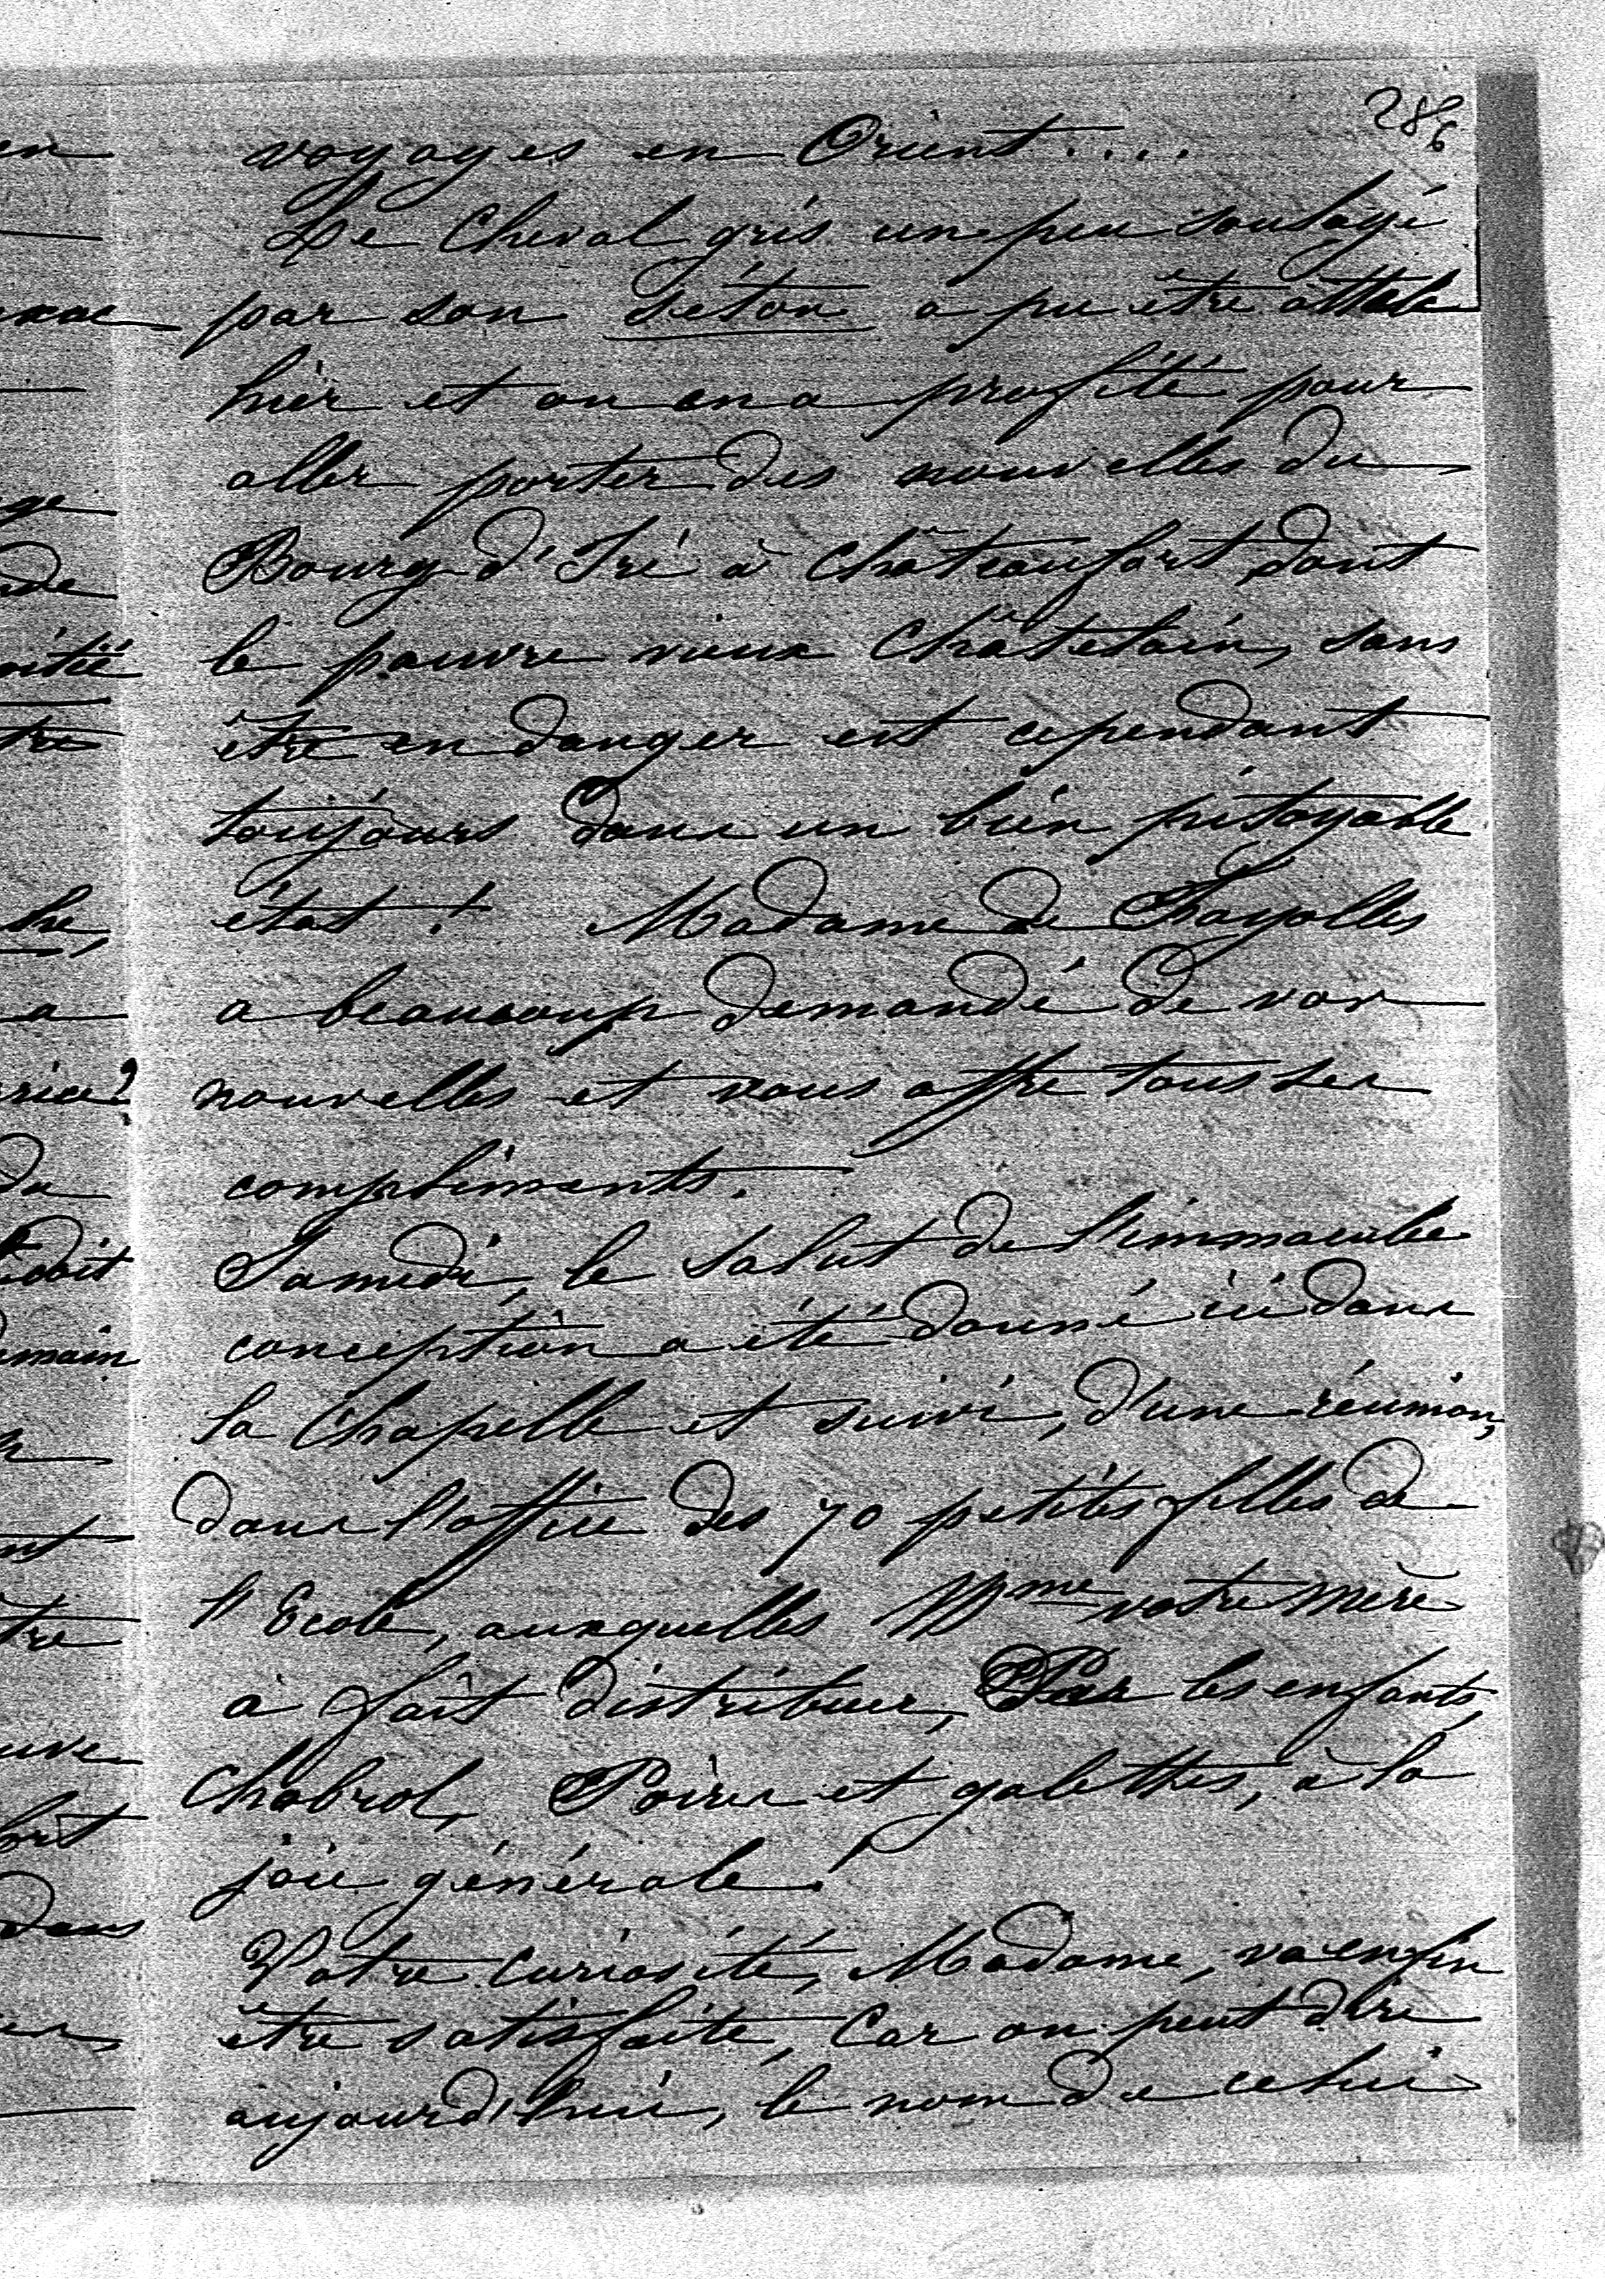 286
voyages en Orient....
Le Cheval gris un peu soulagé
par son séton a pu être attelé
hier et on en a profité pour
aller porter des nouvelles du
Bourg d'Iré à Châteaufort dont
le pauvre vieux Châtelain, sans
être en danger est cependant
toujours dans un bien pitoyable
état! Madame de
a beaucoup demandé de vos
nouvelles et vous offre tous ses
compliments.
Samedi, le Salut de l'immaculée
conception a été donné ici dans
la Chapelle et suivi, d'une réunion,
dans l'office des 70 petites filles de
l'Ecole, auxquelles Mme votre mère
à fait distribuer, Par les enfants
Chabrol, Poires et galettes, à la
joie générale!
Votre Curiosité, Madame, va enfin
être satisfaite, Car on peut dire
aujourd'hui, le nom de celui